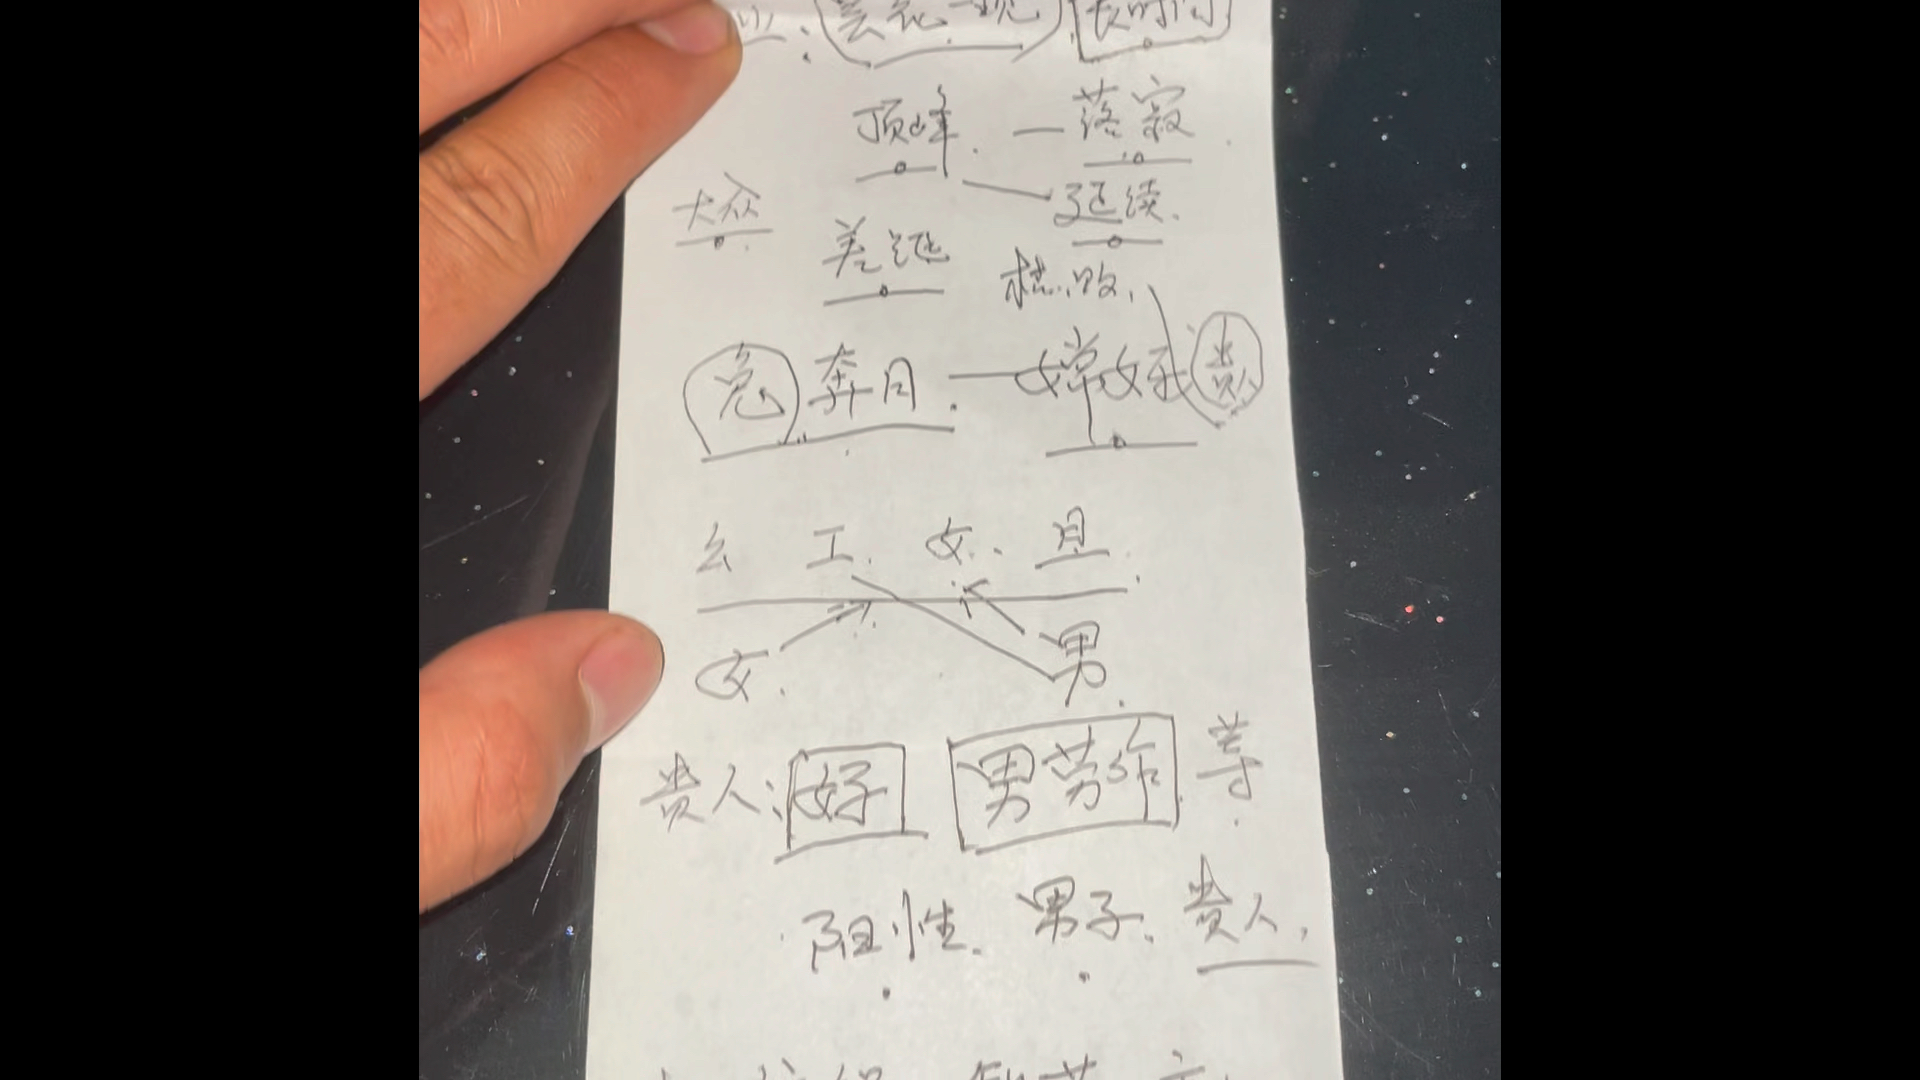 昙花一现 长时间
顶峰 — 落寂
大众 延续
差诞
兔奔月 — 嫦娥 贵
幺 工 女 且
女 男
贵人: 好 男劳作 等
阳性 男子 贵人